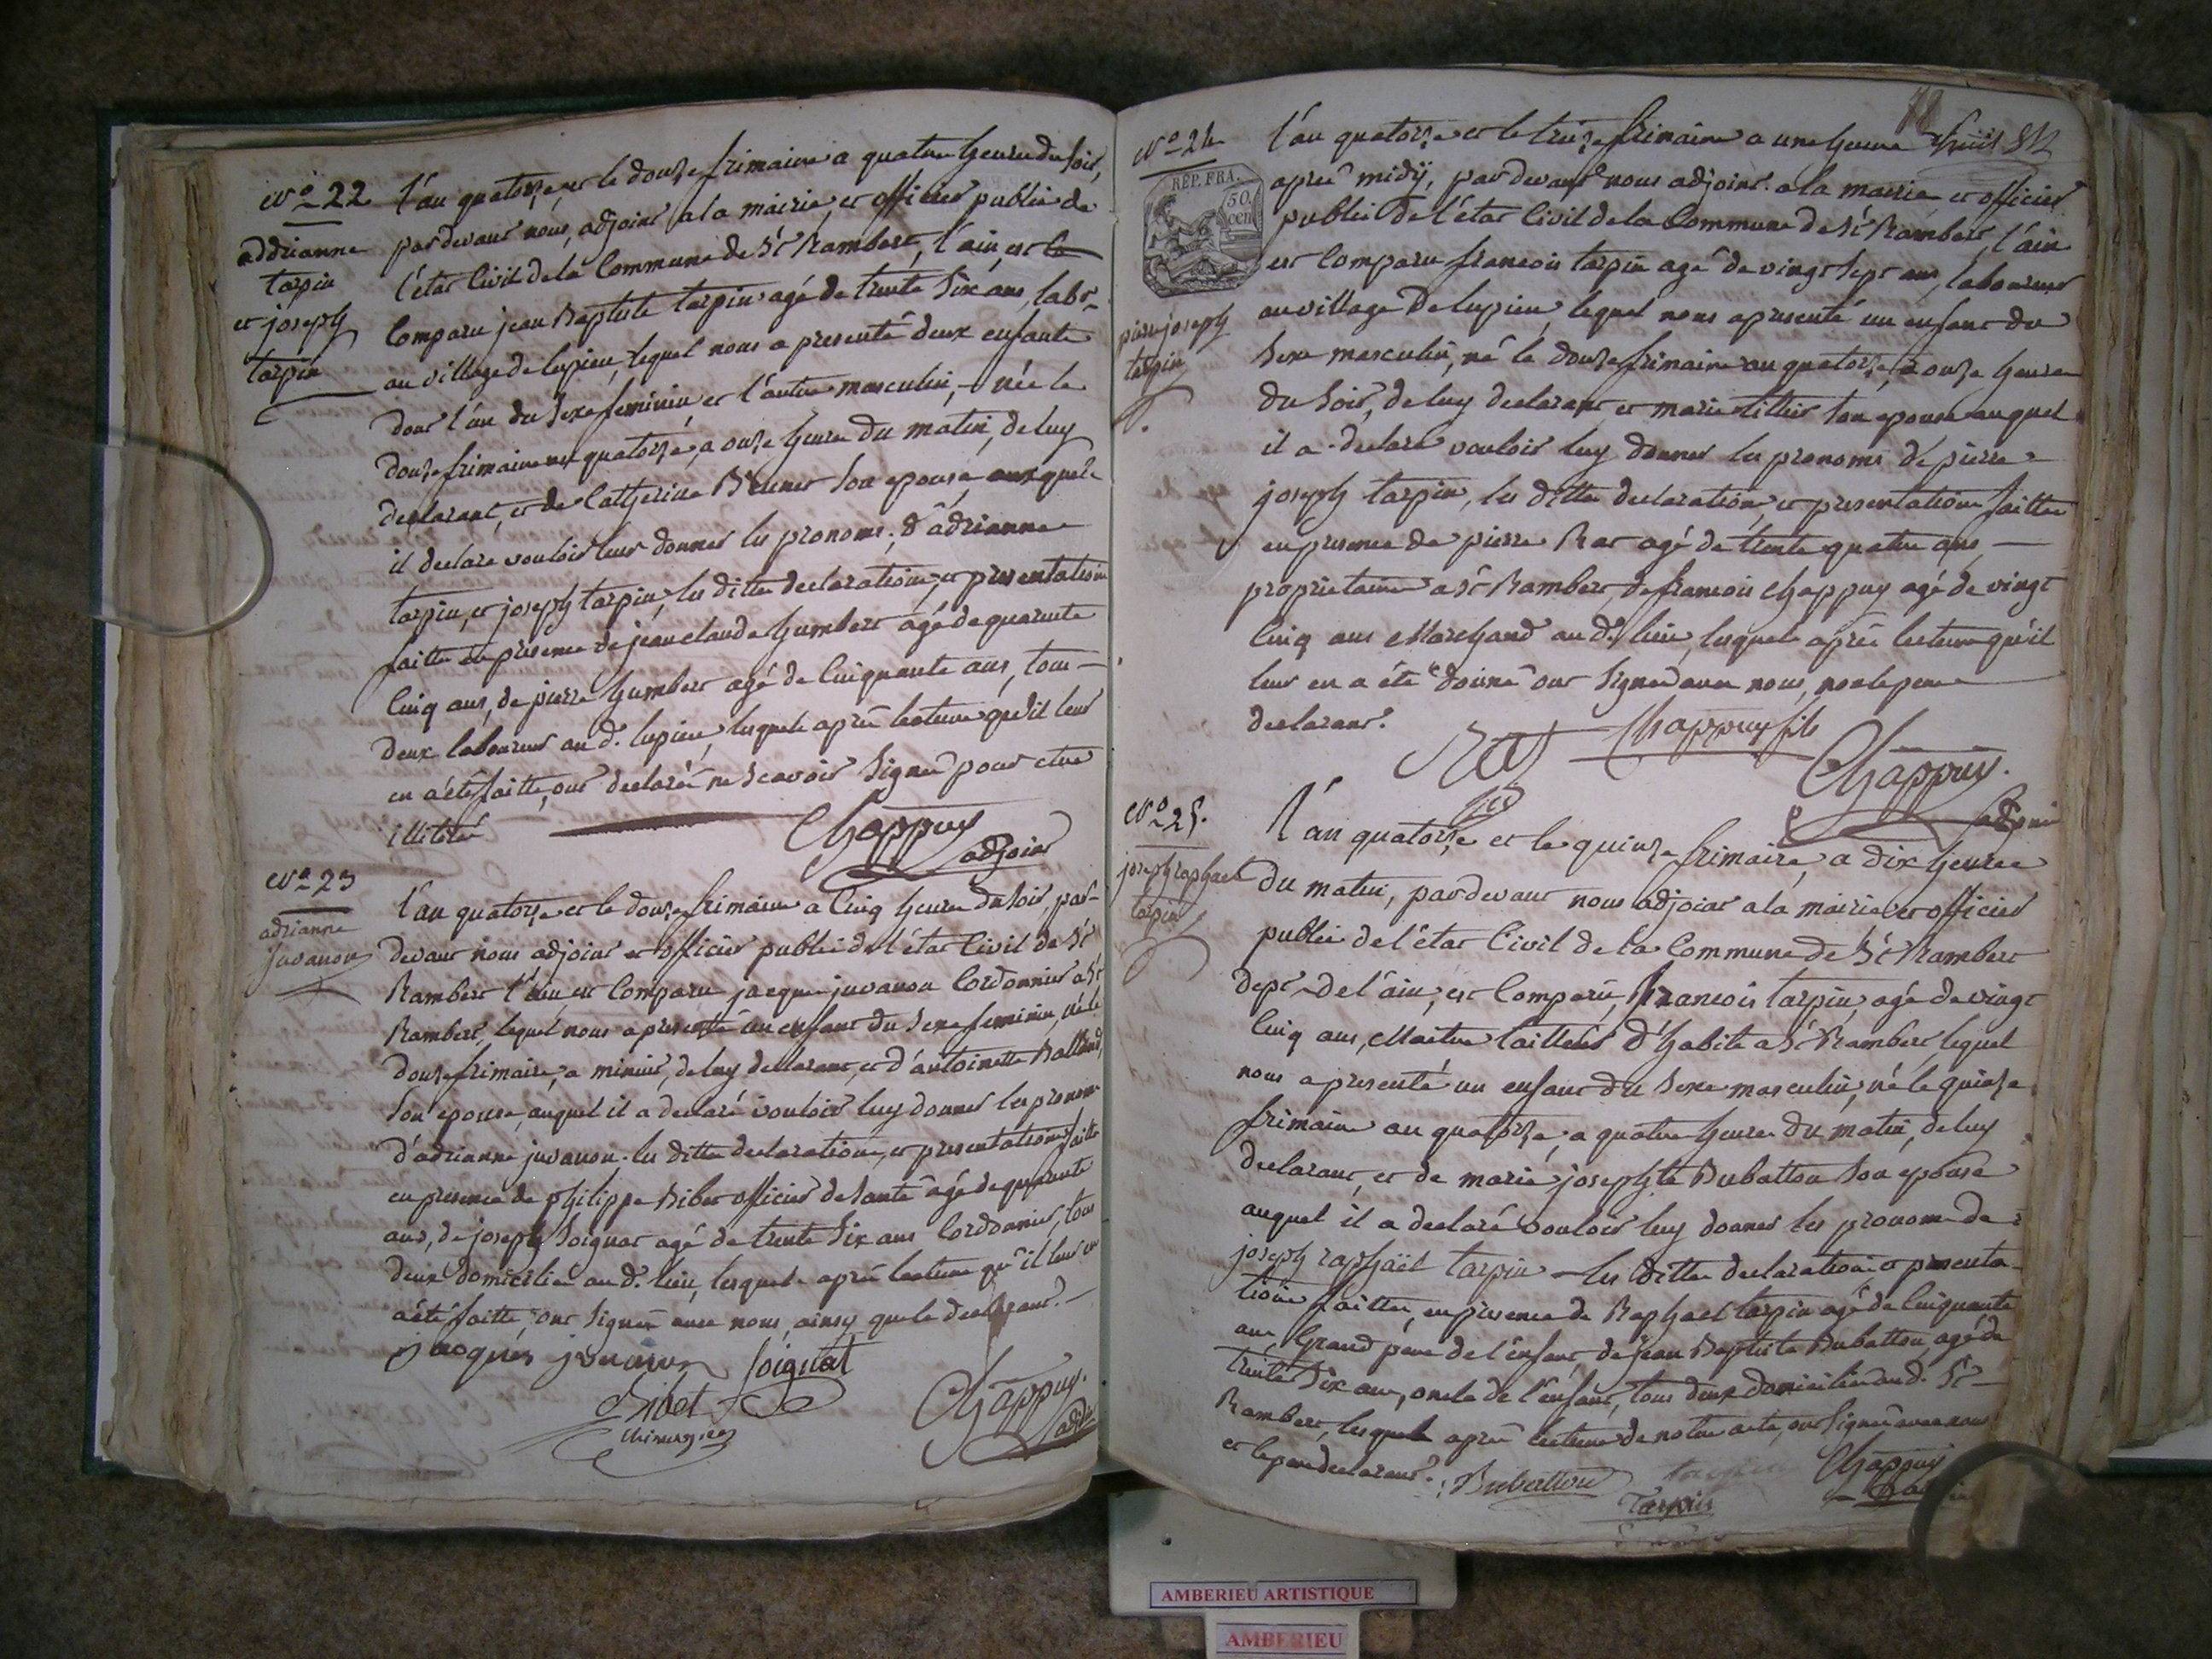 N.o 22
addrianne
tarpin
et joseph
tarpin
l'an quatorze et le douze frimaire a quatre heures du soir,
pardevant nous, adjoint a la mairie, et officier public de
l'état Civil de la Commune de St Rambert, l'ain, est
Comparu jean Baptiste tarpin agé de trente Six ans, labr
au village de lupieu, lequel nous a presenté deux enfants
dont l'un du Sexe feminin et l'autre masculin, née le
douze frimaire an quatorze, a onze heure du matin, de luy
declarant, et de Catherine Son epouse auxquels
il declare vouloir leur donner les pronoms, d'adrianne
tarpin, et joseph tarpin, les ditte declaration, et presentation
faitte en presence de jean claude humbert agé de quarante
Cinq ans, de pierre humbert agé de Cinquante ans, tous
deux laboureur au d. lupieu, lesquels apres lecture qu'il leur
en a été faitte, ont declaré ne scavoir Signer pour etre
illitéré
Chappuy
adjoint
N.o 23
adrianne
juvanon
l'an quatorze et le douze frimaire a Cinq heures du soir, par
devant nous adjoint et officier public de l'état Civil de St
Rambert l'ain est Comparu jacque juvanon Cordonnier a St
Rambert, lequel nous a presenté un enfant du Sexe feminin, né le
douze frimaire, a minuit, de luy declarant, et d'antoinette
Son epouse, auquel il a declaré vouloir luy donner les pronom
d'adrianne juvanon. les ditte declaration, et presentation faitte
en presence de philippe Ribet officier de Santé agé de quarante
ans, de joseph Soignat agé de trente Six ans Cordonnier, tous
deux domicilié au d. lieu, lesquels apres lecture qu'il leur en
a été faitte, ont Signé avec nous, ainsy que le declarant.
jacques juvanon Soignat
Ribet
chirurgien
Chappuy.
adjoint
78
N.o 24
REP. FRA.
50.
cen
pierre joseph
tarpin
l'an quatorze et le treize frimaire a une heure
apres midÿ, pardevant nous adjoint a la mairie et officier
public de l'état Civil de la Commune de St Rambert, l'ain
est Comparu francois tarpin agé de vingt Sept ans, laboureur
au village de lupieu, lequel nous a presenté un enfant du
Sexe masculin, né le douze frimaire an quatorze, a onze heure
du Soir, de luy declarant et marie tillier son epouse auquel
il a declaré vouloir luy donner les pronoms de pierre
joseph tarpin, les ditte declaration, et presentation faitte
en presence de pierre Rat agé de trente quatre ans
proprietaire a St Rambert, de francois chappuy agé de vingt
Cinq ans Marchand au d. lieu, lesquels apres lecture qu'il
leur en a été donné ont Signé avec nous, non le pere
declarant.
Rat Chappuy fils
Chappuy.
adjoint
N.o 25.
joseph raphael
tarpin
l'an quatorze et le quinze frimaire, a dix heures
du matin, pardevant nous adjoint a la mairie et officier
public de l'état Civil de la Commune de St Rambert
dept de l'ain, est Comparu, francois tarpin, agé de vingt
Cinq ans, Maitre tailleur d'habits a St Rambert, lequel
nous a presenté un enfant du Sexe masculin, né le quinze
frimaire an quatorze, a quatre heures du matin, de luy
declarant, et de marie josephte Bubatton Son epouse
auquel il a declaré vouloir luy donner les pronoms de
joseph raphaël tarpin les ditte declaration et presenta
tion faitte, en presence de Raphael tarpin agé de Cinquante
ans, Grand pere de l'enfant, de jean Baptiste Bubatton, agé de
trente Six ans, oncle de l'enfant, tous deux domicilié au d. St
Rambert, lesquels apres lecture de notre acte, ont Signé avec nous
et le pere declarant.
Bubatton
Tarpin
Chappuy
AMBERIEU ARTISTIQUE
AMBERIEU